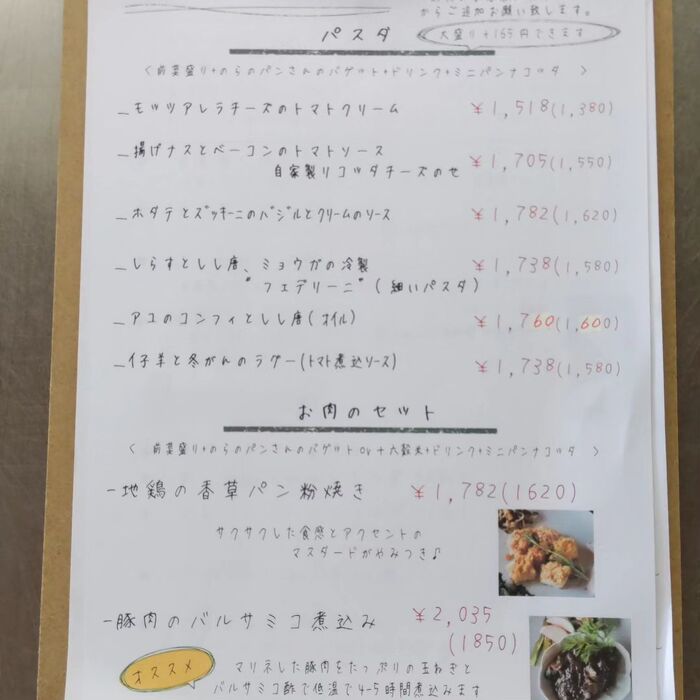 からご追加お願い致します。
パスタ
大盛り+165円できます
〈前菜盛り+のらのパンさんのバゲット+ドリンク+ミニパンナコッタ〉
－モッツアレラチーズのトマトクリーム ¥1,518(1,380)
－揚げナスとベーコンのトマトソース
自家製リコッタチーズのせ ¥1,705(1,550)
－ホタテとズッキーニのバジルとクリームのソース ¥1,782(1,620)
－しらすとしし唐、ミョウガの冷製 ¥1,738(1,580)
"フェデリーニ"(細いパスタ)
－アユのコンフィとしし唐(オイル) ¥1,760(1,600)
－仔羊と冬がんのラグー(トマト煮込ソース) ¥1,738(1,580)
お肉のセット
〈前菜盛り+のらのパンさんのバゲットor十六穀米+ドリンク+ミニパンナコッタ〉
－地鶏の香草パン粉焼き ¥1,782(1620)
サクサクした食感とアクセントの
マスタードがやみつき♪
－豚肉のバルサミコ煮込み ¥2,035
(1850)
オススメ
マリネした豚肉をたっぷりの玉ねぎと
バルサミコ酢で低温で4-5時間煮込みます